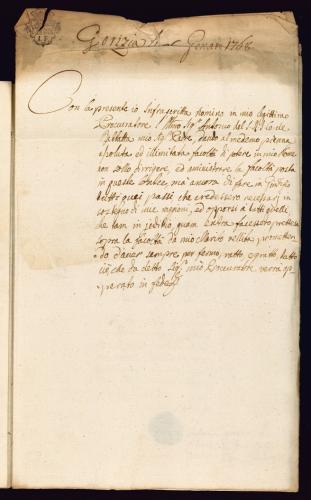 Gorizia li Genaro 1768
Con la presente io Infrascritta nomino in mio legittimo
Procuratore l'Illmo Sigr Antonio del
mio Sigr dando al medemo piena
assoluta ed illimitata facoltà di potere in mio Nome
non sollo dirigere, ed aministrare la facoltà posta
in queste ma ancora di fare in Giudizio
tutti quei passi che credessero necessarj in
sostegno di mie ragioni, ed opporsi a tutti quelli,
che tam in judicio quam extra facessero pretese
sopra la facoltà da mio Marito relitta prometten
do d'aver sempre per fermo, ratto, e gratto tutto
ciò che da detto Sigr mio Procuratore verrà o
perato in fede